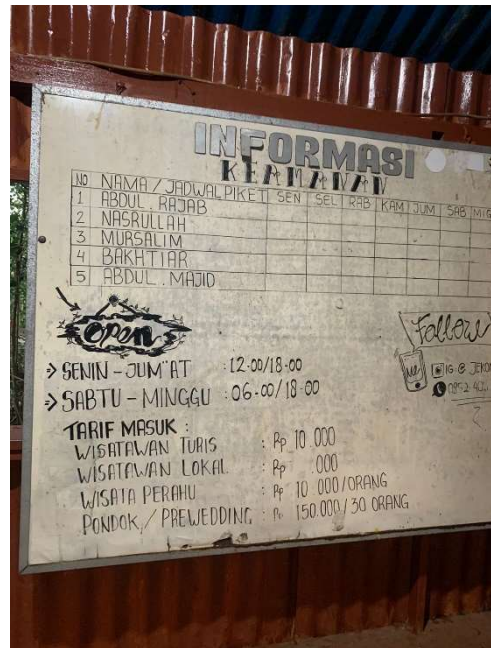 INFORMASI
KEAMANAN
NO NAMA / JADWAL PIKET SEN SEL RAB KAM JUM SAB MIG
1 ABDUL . RAJAB
2 NASRULLAH
3 MURSALIM
4 BAKHTIAR
5 ABDUL . MAJID
Open
Follow
me
IG @ JEKO
0852
SENIN - JUM'AT : 12.00/18.00
SABTU - MINGGU : 06.00/18.00
TARIF MASUK :
WISATAWAN TURIS : Rp 10.000
WISATAWAN LOKAL : Rp .000
WISATA PERAHU : Rp 10.000/ORANG
PONDOK / PREWEDDING : Rp 150.000/30 ORANG